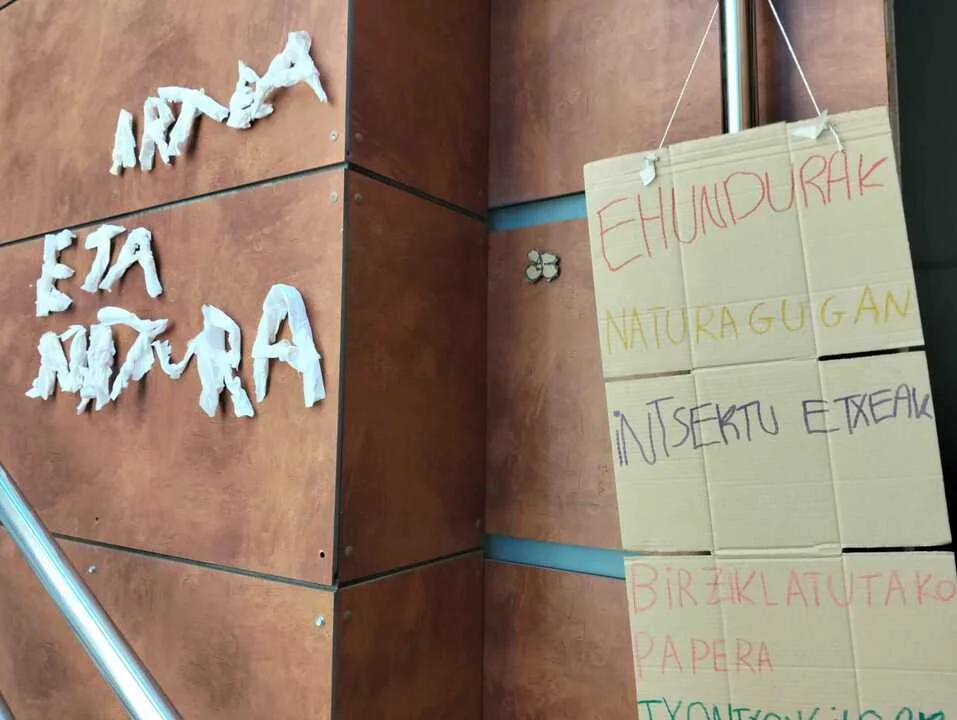 ARTEA
ETA
NATURA
EHUNDURAK
NATURA GUGAN
INTSEKTU ETXEAK
BIRZIKLATUTAKO
PAPERA